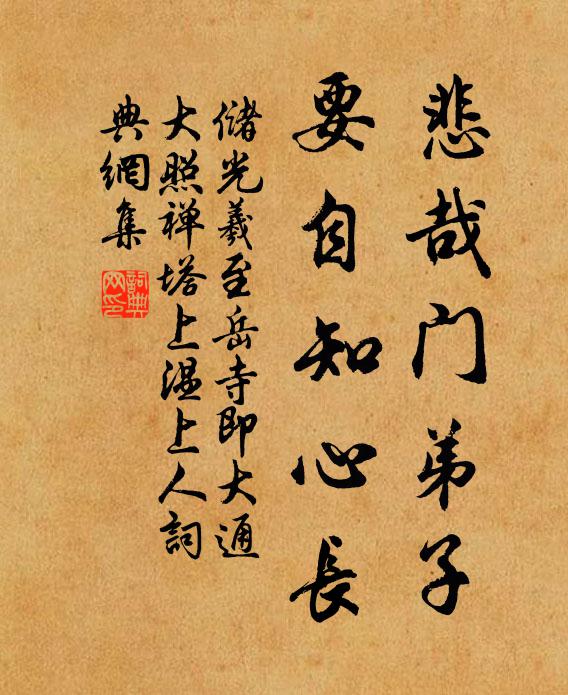 悲哉门弟子
要自知心長
儲光羲至岳寺即大通
大照禅塔上温上人詞
典網集
詞典网印